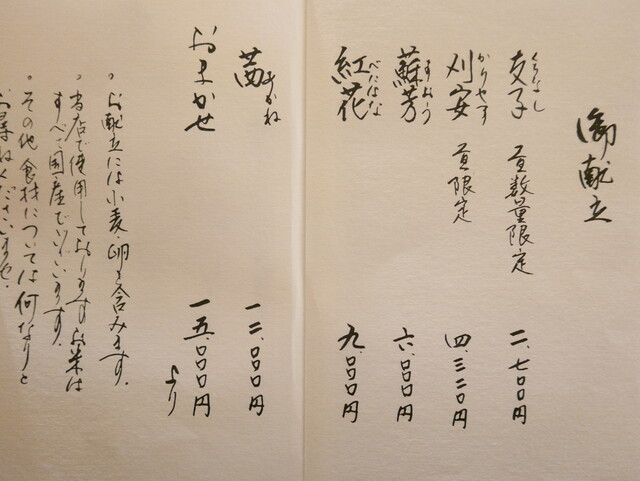 御献立
支子 くちなし 昼数量限定 二、七〇〇円
刈安 かりやす 昼限定 四、三二〇円
蘇芳 すおう 六、〇〇〇円
紅花 べにはな 九、〇〇〇円
茜 あかね 一二、〇〇〇円
おまかせ 一五、〇〇〇円より
。お献立には小麦、卵を含みます。
。当店で使用しておりますお米は
すべて国産でございます。
。その他食材については何なりと
お尋ねくださいませ。